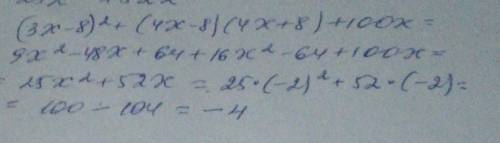 (3x-8)²+(4x-8)(4x+8)+100x=
9x²-48x+64+16x²-64+100x=
=25x²+52x=25·(-2)²+52·(-2)=
=100-104=-4